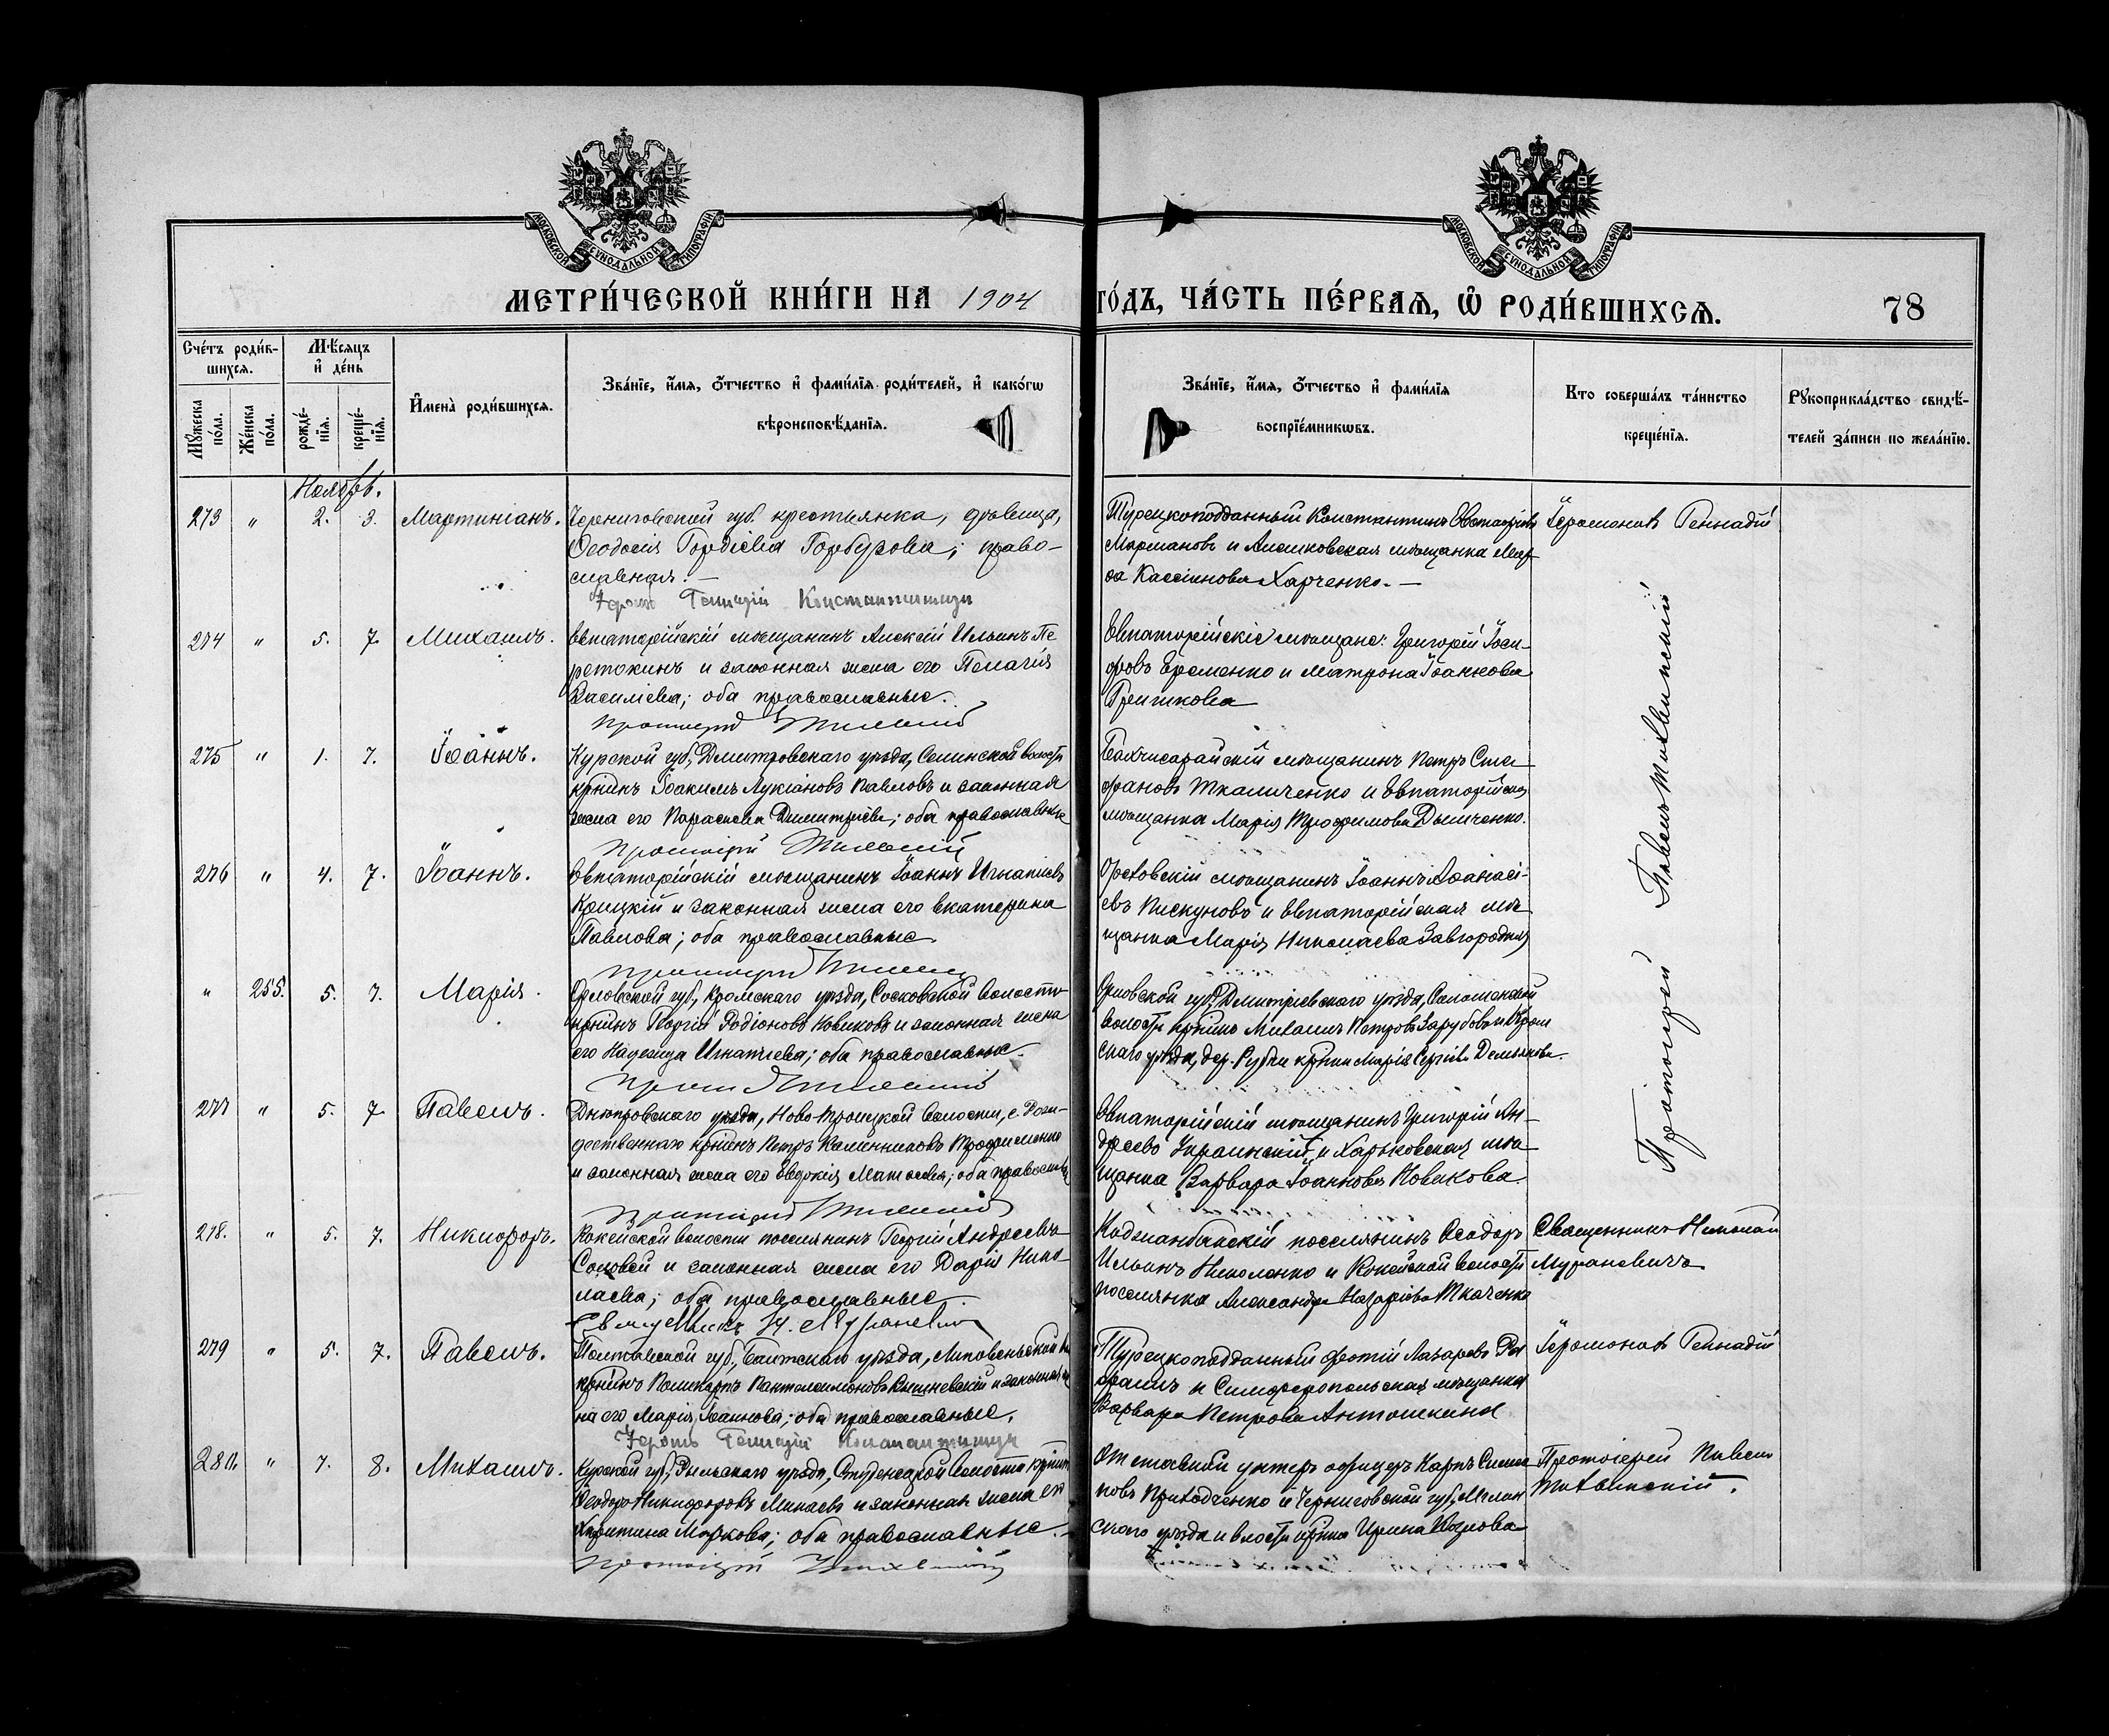 МОСКОВСКОЙ СУНОДАЛЬНОЙ ТИПОГРАФІИ
МОСКОВСКОЙ СУНОДАЛЬНОЙ ТИПОГРАФІИ
МЕТРИ́ЧЕСКОЙ КНИ́ГИ НА 1904 ГО́ДЪ, ЧА́СТЬ ПЕ́РВАѦ, Ѡ҆ РОДИ́ВШИХСѦ. 78
Сче́тъ роди́в-
шихсѧ.
Мѣ́сѧцъ
и҆ де́нь
Мꙋ́жеска
по́ла.
Же́нска
по́ла.
рожде́-
нїѧ.
креще́-
нїѧ.
И҆мена̀ роди́вшихсѧ.
Зва́нїе, и҆́мѧ, ѻ҆́тчество и҆ фами́лїѧ роди́телей, и҆ како́гѡ
вѣроисповѣ́данїѧ.
Зва́нїе, и҆́мѧ, ѻ҆́тчество и҆ фами́лїѧ
воспрїе́мникѡвъ.
Кто соверша́лъ та́инство
креще́нїѧ.
Рꙋкоприкла́дство свидѣ́-
телей за́писи по жела́нїю.
Ноябрь.
273 " 2. 3. Мартиніанъ.
Черниговской губ. крестьянка, дѣвица,
Ѳеодосія Гордіева Горбузова; право-
славная. —
Іером. Геннадій
Турецкоподданный Константинъ Евстафіевъ
Мармановъ и Алешковская мѣщанка Мар-
ѳа Кассіанова Харченко. —
Іеромонахъ Геннадій
274 " 5. 7. Михаилъ.
Евпаторійскій мѣщанинъ Алексій Ильинъ Пе
ретокинъ и законная жена его Пелагія
Василіева; оба православные.
Протоіерей
Евпаторійскіе мѣщане: Григорій Іоси-
фовъ Еременко и Матрона Іоаннова
Грешкова
275 " 1. 7. Іоаннъ.
Курской губ., Дмитровскаго уѣзда, Селинской волости
крнинъ Іоакимъ Лукіановъ Павловъ и законная
жена его Параскева Димитріева; оба православные
Протоіерей
Бахчисарайскій мѣщанинъ Петръ Сте-
фановъ Ткаличенко и Евпаторійская
мѣщанка Марія Трофимова Дымченко.
276 " 4. 7. Іоаннъ.
Евпаторійскій мѣщанинъ Іоаннъ Игнатіевъ
Крицкій и законная жена его Екатерина
Павлова; оба православные.
Протоіерей
Орѣховскій мѣщанинъ Іоаннъ Аѳанасі-
евъ Пискуновъ и Евпаторійская мѣ-
щанка Марія Николаева Завгородняя
" 255. 5. 7. Марія.
Орловской губ., Кромскаго уѣзда, Сосковской волости
крнинъ Георгій Родіоновъ Новиковъ и законная жена
его Надежда Игнатіева; оба православные.
Орловской губ., Дмитріевскаго уѣзда, Соломенской
волости крнинъ Михаилъ Петровъ Зарубовъ и Кром
скаго уѣзда, дер. крнка Марія Сергіева Демьянова.
277 " 5. 7. Павелъ.
Днѣпровскаго уѣзда, Ново-Троицкой волости, с. Рож-
дественнаго крнинъ Петръ Калинниковъ Трофименко
и законная жена его Евдокія Матѳеева; оба православные
Протоіерей
Евпаторійскій мѣщанинъ Григорій Ан-
дреевъ Украинскій, и Харьковская мѣ-
щанка Варвара Іоаннова Новикова.
Протоіерей Павелъ Тихвинскій
278. " 5. 7. Никифоръ.
Кокейской волости поселянинъ Георгій Андреевъ
Соловей и законная жена его Дарія Нико-
лаева; оба православные.
Священникъ Н. Мурановичъ
Коджанбакскій поселянинъ Ѳеодоръ
Ильинъ Николенко и Кокейской волости
поселянка Александра Назаріева Ткаченко
Священникъ Николай
Мурановичъ
279 " 5. 7. Павелъ.
губ., Балтскаго уѣзда,
крнинъ Поликарпъ Пантелеимоновъ Вишневскій и законная же
на его Марія Іоаннова; оба православные.
Іером. Геннадій
Турецкоподданный Фотій Лазаревъ
и Симферопольская мѣщанка
Варвара Петрова Антошкина
Іеромонахъ Геннадій
280. " 7. 8. Михаилъ.
Курской губ., Рыльскаго уѣзда, Студенецкой волости крнинъ
Ѳеодоръ Никифоровъ Минаевъ и законная жена его
Харитина Маркова; оба православные.
Протоіерей Тихвинскій
Отставной унтеръ офицеръ Карпъ
новъ Приходченко и Черниговской губ., Мглин
скаго уѣзда и волости крнка Ирина Козлова
Протоіерей Павелъ
Тихвинскій.